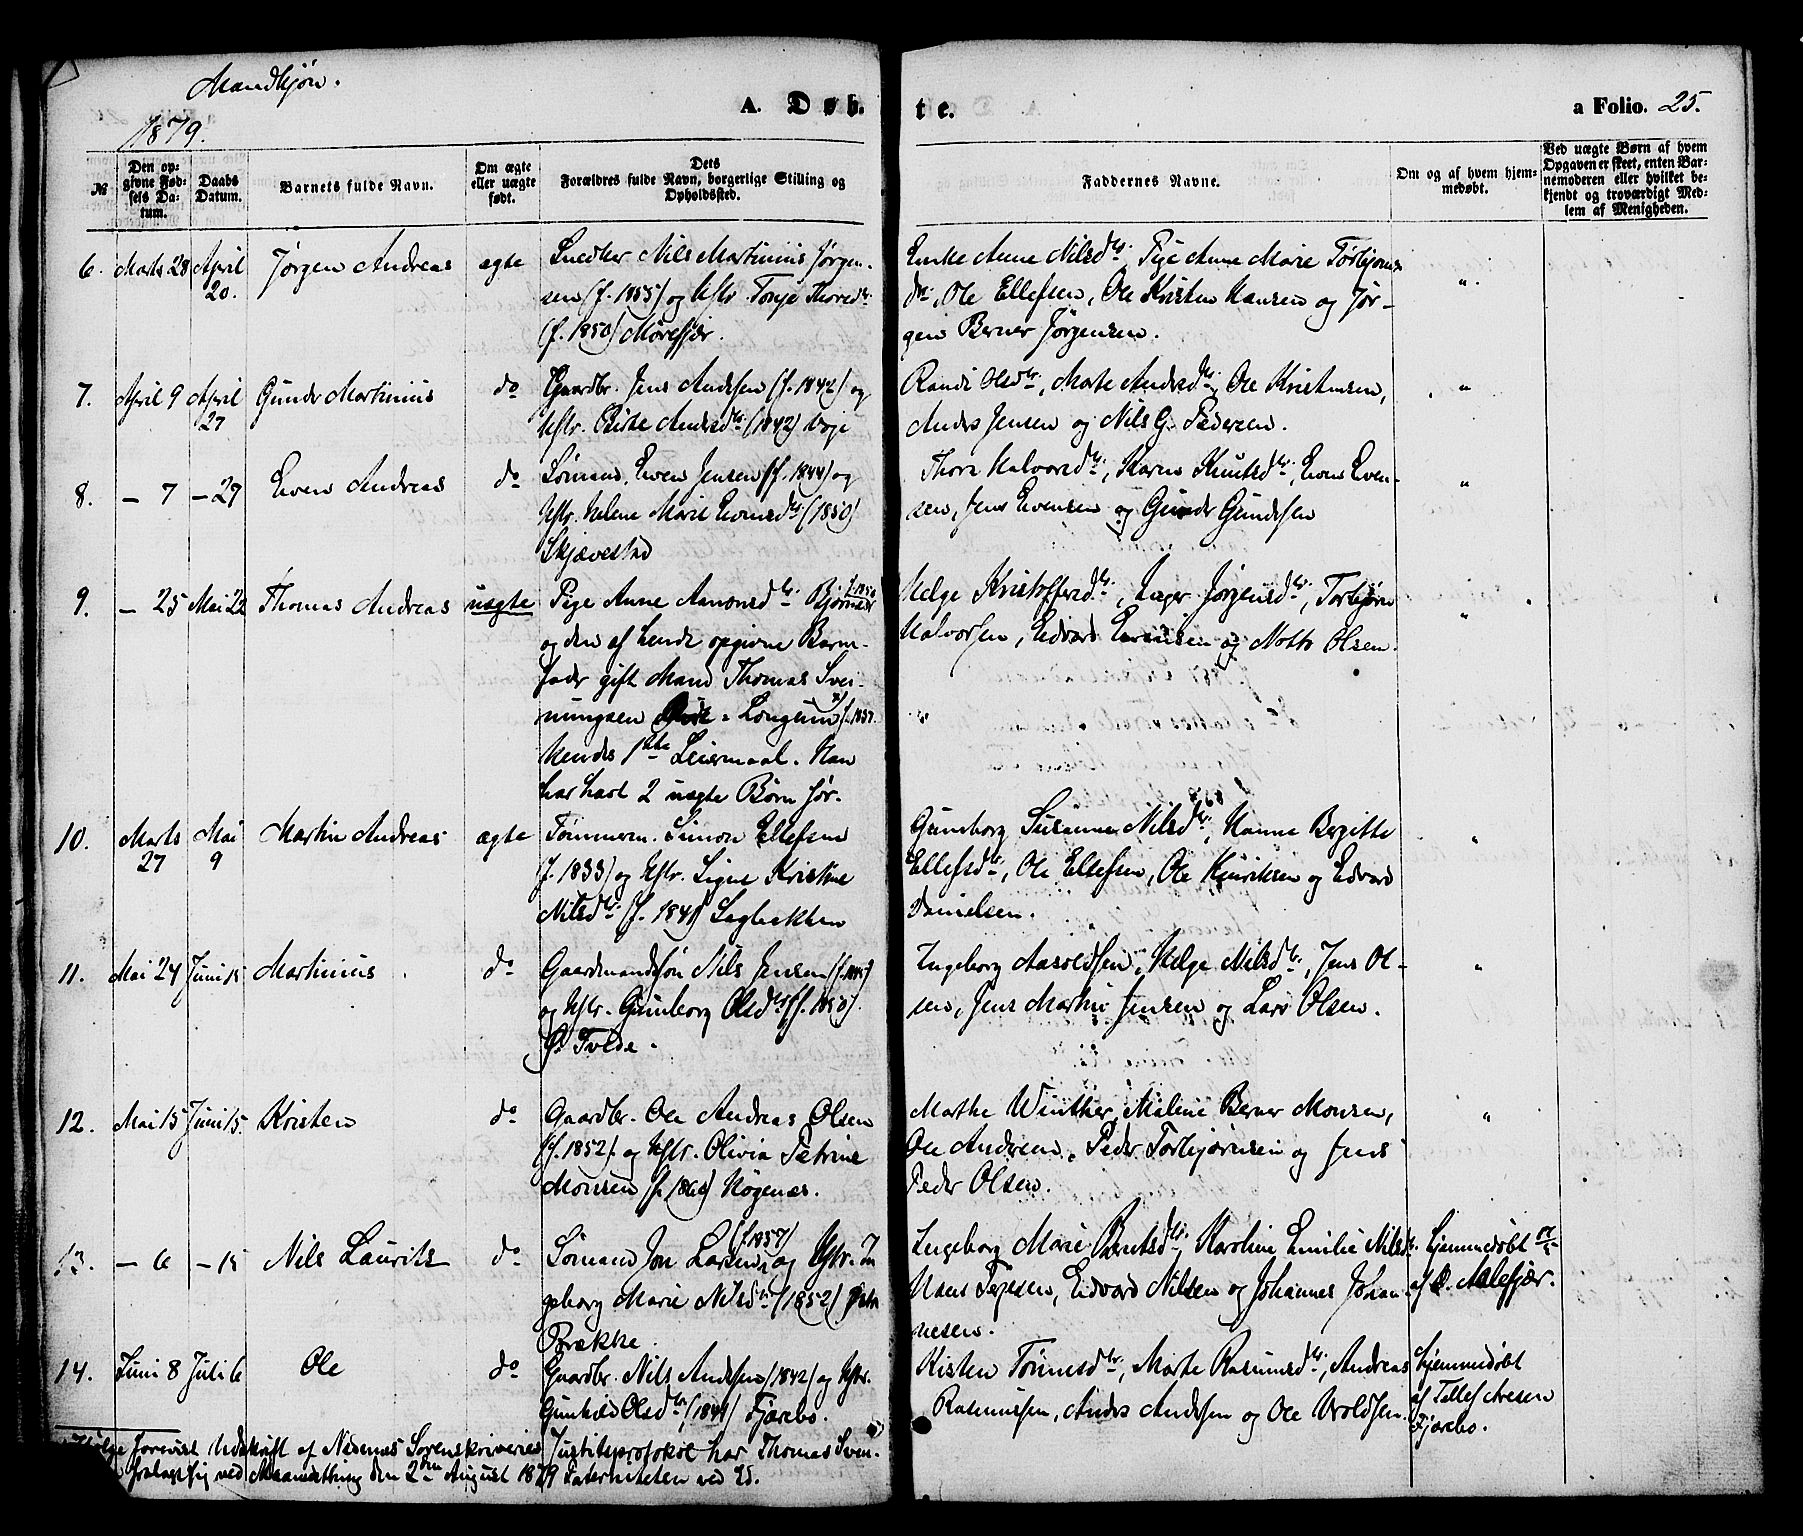 Mandkjøn.
A. Døb.
te.
a Folio. 25.
1879.
№
Den op-
givne Fød-
sels Da-
tum.
Daabs
Datum.
Barnets fulde Navn.
Om ægte
eller uægte
født.
Dets
Forældres fulde Navn, borgerlige Stilling og
Opholdssted.
Faddernes Navne.
Om og af hvem hjem-
medøbt.
Ved uægte Børn af hvem
Opgaven er skeet, enten Bar-
nemoderen eller hvilket be-
kjendt og troværdigt Med-
lem af Menigheden.
6. Marts 28 April 20. Jørgen Andreas ægte
Snedker Nils Martinius Jørgen-
sen (f. 1853) og Hstr. Tonje Thoresdtr.
(f. 1850) Morefjær.
Enke Anne Nilsdtr., Pige Anne Marie Torbjørns-
dtr., Ole Ellefsen, Ole Kristen Hansen og Jør-
gen Berner Jørgensen.
"
7. April 9 April 27 Gunder Martinius do
Gaardbr. Jens Andersen (f. 1842) og
Hstr. Birte Andersdtr. (1842) Voje
Randi Olsdtr., Marte Andersdtr., Ole Kristensen,
Anders Jensen og Nils G. Pedersen.
"
8. – 7 – 27 Even Andreas do
Sømand, Even Jensen (f. 1844) og
Hstr. Helene Marie Evensdtr. (1850)
Skjævestad
Thore Halvorsdtr., Karen Knutsdtr., Even Even-
sen, Jens Evensen og Gunder Gundersen
"
9. – 25 Mai 22 Thomas Andreas uægte
Pige Anne Aanonsdtr. Bjørnes f. 1850
og den af hende opgivne Barne-
fader gift Mand Thomas Svei-
nungsen Longum x) f. 1837.
Hendes 1ste Leiermaal. Han
har havt 2 uægte Børn før.
Helge Kristoffersdtr., Inger Jørgensdtr., Torbjørn
Halvorsen, Edvard Evensen og Notto Olsen.
"
"
10. Marts 27 Mai 9 Martin Andreas ægte
Tømmerm. Simon Ellefsen
(f. 1833) og Hstr. Signe Kristine
Nilsdtr. (f. 1841) Sagbakken
Gunborg Susanne Nilsdtr., Hanne Bergitte
Ellefsdtr., Ole Ellefsen, Ole Henriksen og Edvard
Danielsen.
"
11. Mai 24 Juni 15 Martinius do
Gaardmandssøn Nils Jensen (f. 1845)
og Hstr. Gunborg Olsdtr. (f. 1850).
Ø. Tvede.
Ingeborg Aasoldsen, Helge Nilsdtr., Jens Ol-
sen, Jens Martin Jensen og Lars Olsen.
"
12. Mai 15 Juni 15. Kristen do
Gaardbr. Ole Andreas Olsen
(f. 1852). og Hstr. Olivia Petrine
Monsen (f. 1860) Høgenæs.
Marthe Winther, Maline Berner Monsen,
Ole Andersen, Peder Torbjørnsen og Jens
Peder Olsen.
"
13. – 6 – 15 Nils Laurits do
Sømand Jon Larsen (f 1857) og Hstr. In
geborg Marie Nilsdtr. (1852)
Brække.
Ingeborg Marie Berntsdtr., Karoline Emilie Nilsdtr.
Hans Terjesen, Edvard Nilsen og Johannes Johan-
nesen.
hjemmedøbt
af O. Molefjær.
14. Juni 8 Juli 6 Ole do
Gaardbr. Nils Andersen (1842) og Hstr.
Gunhild Olsdtr. (1841) Fjærebo.
Kisten Tønnesdtr., Marte Rasmusdtr., Andreas
Rasmussen, Anders Andersen og Ole Uvoldsen.
hjemmedøbt
af Tellef Aresen
Fjærebo.
Følge forevist Udskrift af Nedenæs Sorenskriveries Justitsprotokol har Thomas Svein-
fralagt sig ved Maansætning den 2den August 1879 Paterniteten ved Ed.